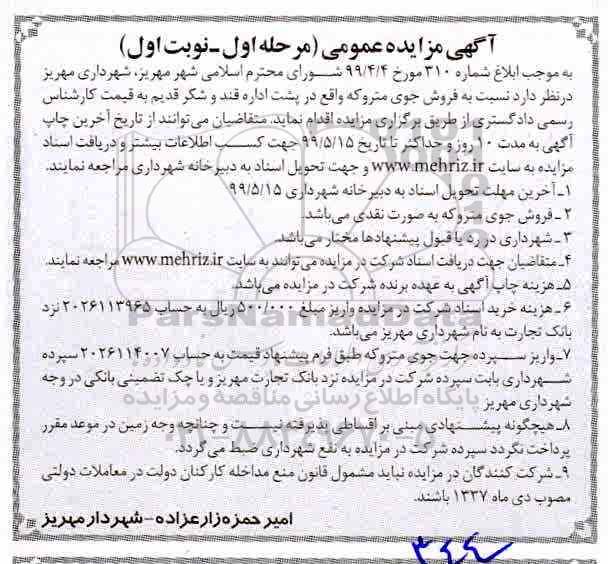 آگهی مزایده عمومی (مرحله اول ـ نوبت اول)
به موجب ابلاغ شماره ۳۱۰ مورخ ۹۹/۴/۴ شورای محترم اسلامی شهر مهریز، شهرداری مهریز
درنظر دارد نسبت به فروش جوی متروکه واقع در پشت اداره قند و شکر قدیم به قیمت کارشناس
رسمی دادگستری از طریق برگزاری مزایده اقدام نماید. متقاضیان می‌توانند از تاریخ آخرین چاپ
آگهی به مدت ۱۰ روز و حداکثر تا تاریخ ۹۹/۵/۱۵ جهت کسب اطلاعات بیشتر و دریافت اسناد
مزایده به سایت www.mehriz.ir و جهت تحویل اسناد به دبیرخانه شهرداری مراجعه نمایند.
۱ـ آخرین مهلت تحویل اسناد به دبیرخانه شهرداری ۹۹/۵/۱۵
۲ـ فروش جوی متروکه به صورت نقدی می‌باشد.
۳ـ شهرداری در رد یا قبول پیشنهادها مختار می‌باشد.
۴ـ متقاضیان جهت دریافت اسناد شرکت در مزایده می‌توانند به سایت www.mehriz.ir مراجعه نمایند.
۵ـ هزینه چاپ آگهی به عهده برنده شرکت در مزایده می‌باشد.
۶ـ هزینه خرید اسناد شرکت در مزایده واریز مبلغ ۵۰۰/۰۰۰ ریال به حساب ۲۰۲۶۱۱۳۹۶۵ نزد
بانک تجارت به نام شهرداری مهریز می‌باشد.
۷ـ واریز سپرده جهت جوی متروکه طبق فرم پیشنهاد قیمت به حساب ۲۰۲۶۱۱۴۰۰۷ سپرده
شهرداری بابت سپرده شرکت در مزایده نزد بانک تجارت مهریز و یا چک تضمینی بانکی در وجه
شهرداری مهریز
۸ـ هیچگونه پیشنهادی مبنی بر اقساطی پذیرفته نیست و چنانچه وجه زمین در موعد مقرر
پرداخت نگردد سپرده شرکت در مزایده به نفع شهرداری ضبط می‌گردد.
۹ـ شرکت کنندگان در مزایده نباید مشمول قانون منع مداخله کارکنان دولت در معاملات دولتی
مصوب دی ماه ۱۳۳۷ باشند.
امیر حمزه زارعزاده - شهردار مهریز
۳۴۴
ParsNamadData
پایگاه اطلاع رسانی مناقصه و مزایده
۰۲۱-۸۸۳۴۹۶۷۰-۵